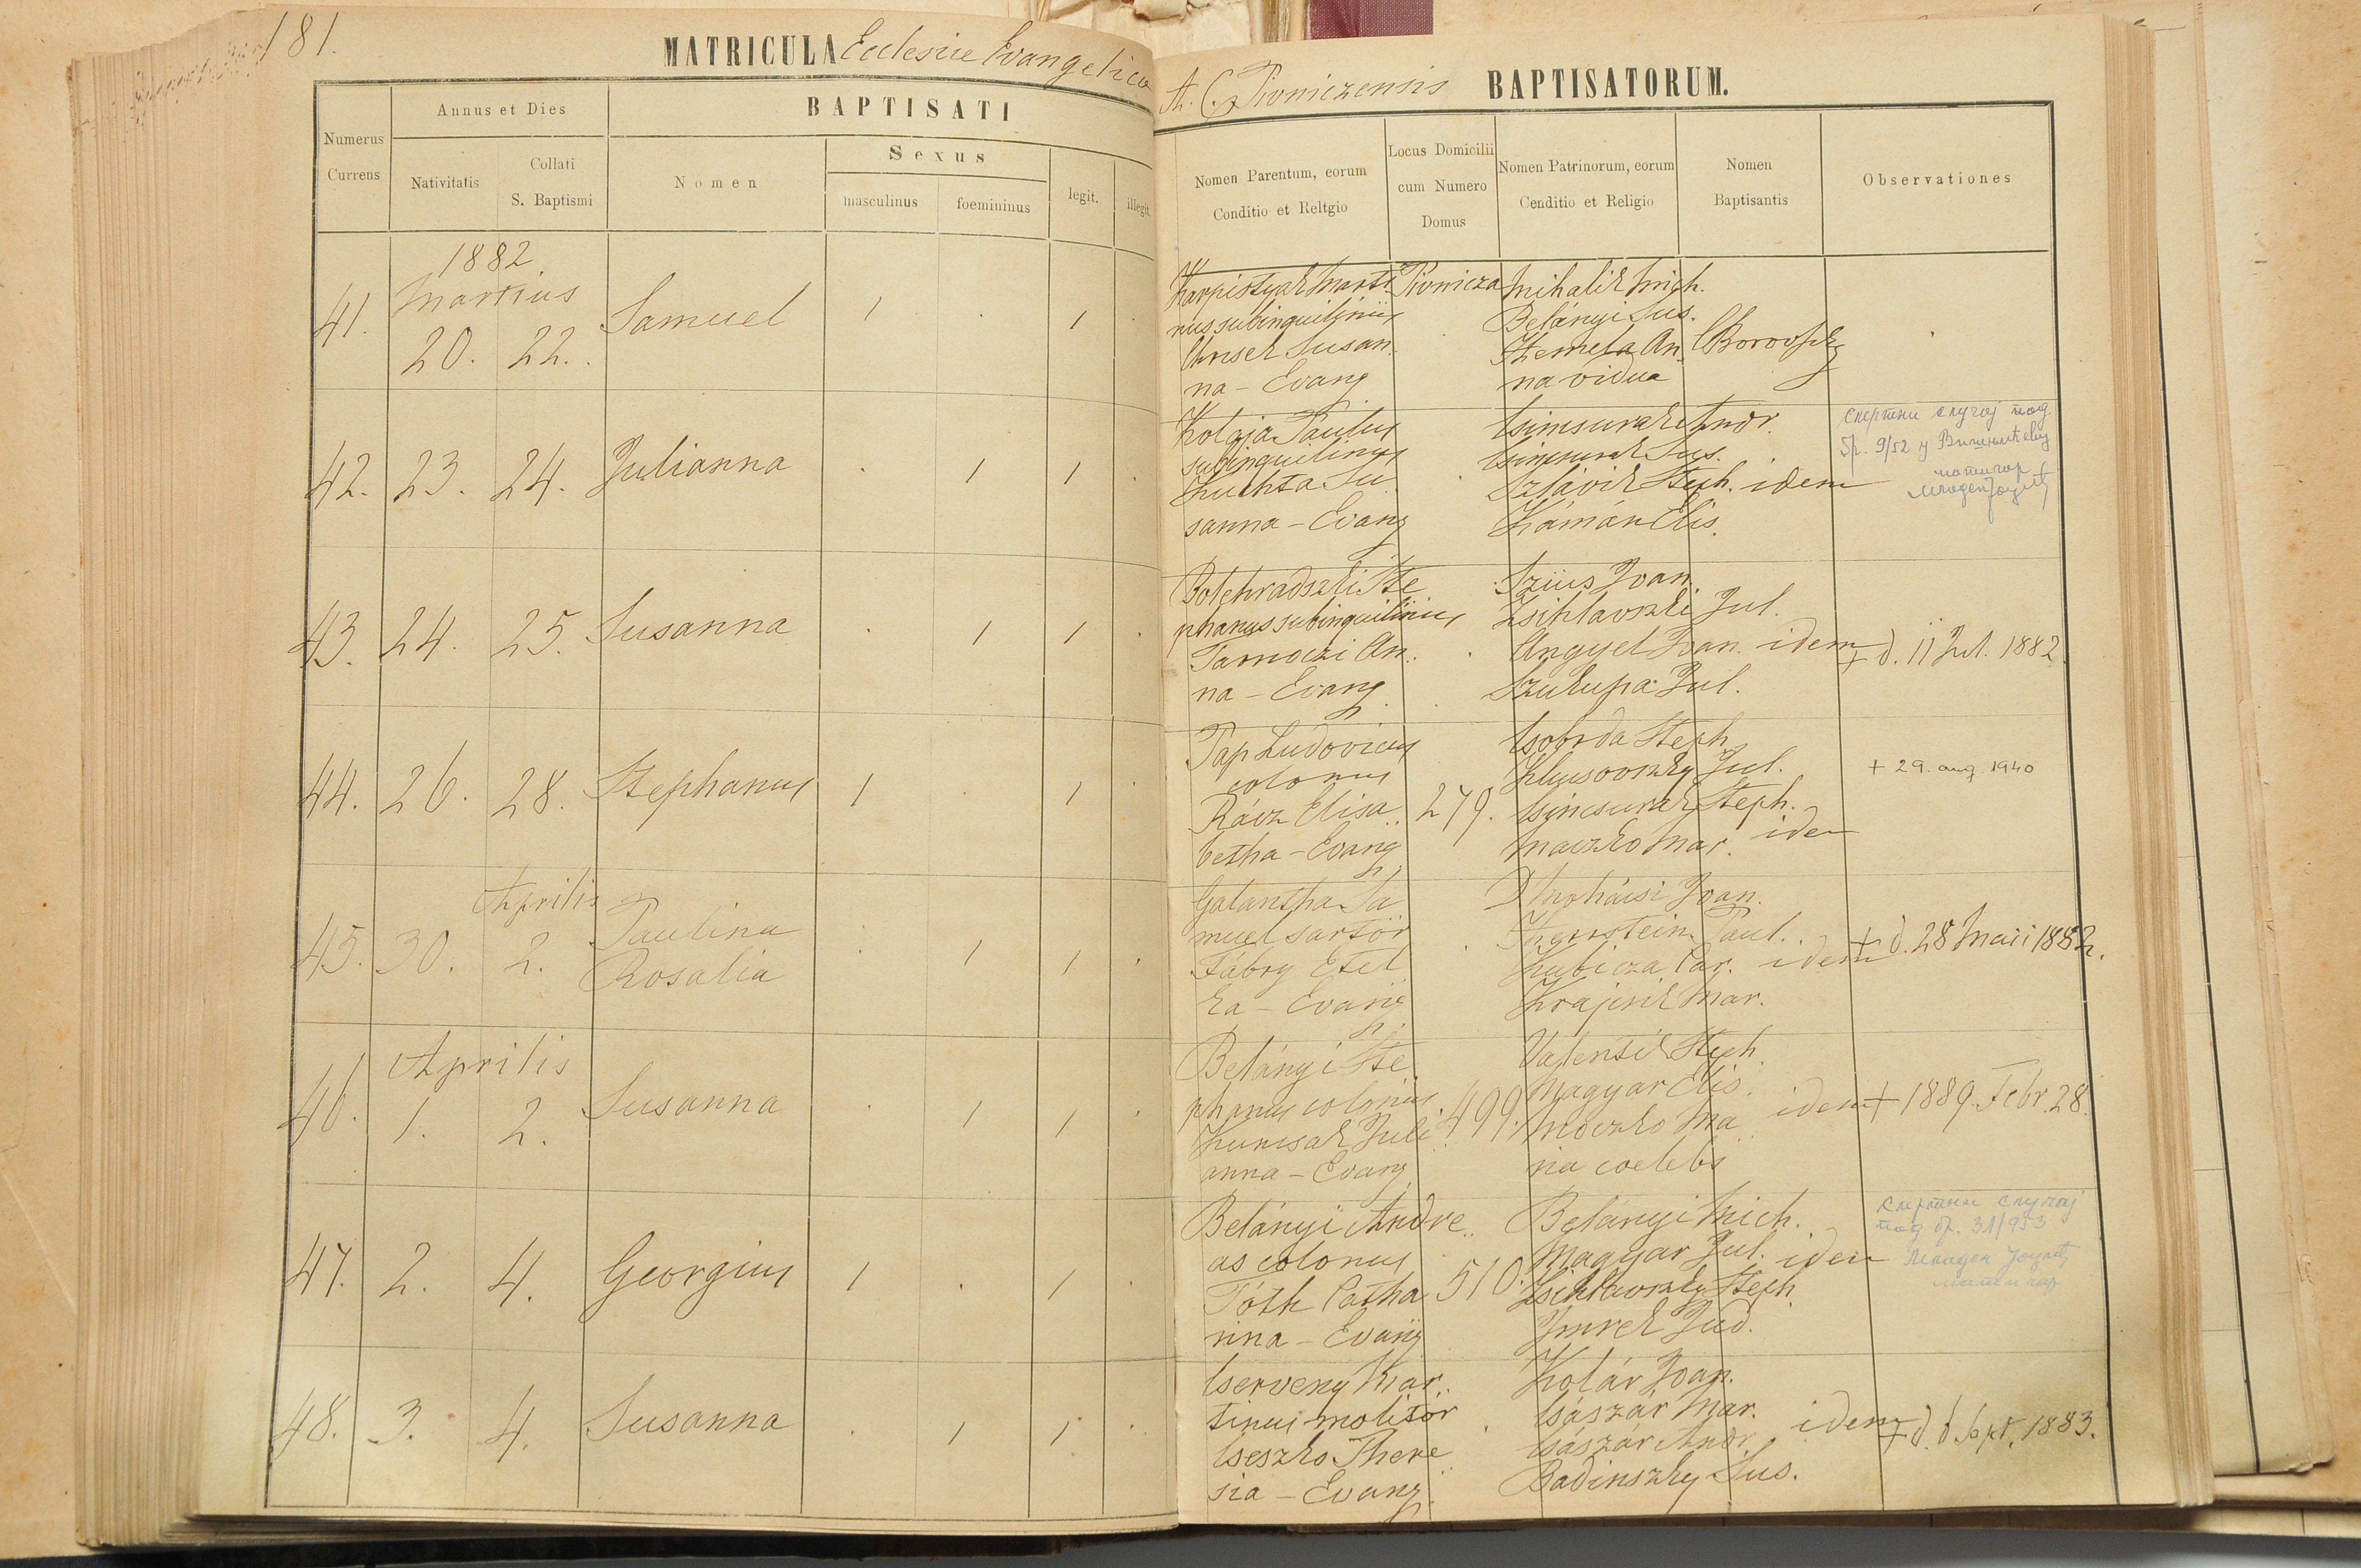 181.
MATRICULA Ecclesiae Evangelicae
A. C. Pivniczensis BAPTISATORUM.
Numerus Currens
Annus et Dies
Nativitatis
Collati S. Baptismi
BAPTISATI
Nomen
Sexus
masculinus
foemininus
legit.
illegit.
Nomen Parentum, eorum
Conditio et Reltgio
Locus Domicilii
cum Numero
Domus
Nomen Patrinorum, eorum
Cenditio et Religio
Nomen
Baptisantis
Observationes
1882
Martius
41. 20. 22. Samuel 1 . 1 .
Karpistyak Marti
nus subinquilinus
Chrsek Susan
na - Evang
Pivnicza
Mihalik Mich.
Belányi Sus.
An
na vidua
Borovszky
42. 23. 24. Julianna . 1 1 .
Kolaja Paulus
subinquilinus
Kuchta Su
sanna - Evang
Csincsurak Andr.
Csincsurak Sus.
Szlávik Steph. idem
Kámán Elis.
смртни случај под
бр. 9/52 у
матичар
43. 24. 25. Susanna . 1 1 .
Bolehradszki Ste
phanus subinquilinus
Tarnoczi An
na - Evang
Szüts Joan.
Zsihlavszki Jul.
Angyel Joan. idem
Szukupa Jul.
+ d. 11 Jul. 1882.
44. 26. 28. Stephanus 1 . 1 .
Pap Ludovicus
colonus
Rácz Elisa
betha - Evang
279.
Csobrda Steph.
Klusovszky Jul.
Csincsurak Steph.
Maczko Mar. idem
+ 29. aug. 1940
Aprilis
45. 30. 2. Paulina
Rosalia . 1 1 .
Galantha Sa
muel sartor
Fábry Etel
ka - Evang
D Mohácsi Joan.
Paul.
Kubicza Car. idem
Krajcsik Mar.
+ d. 28 Maii 1882.
Aprilis
46. 1. 2. Susanna . 1 1 .
Belányi Ste
phanus colonus
Kuncsak Juli
anna - Evang
499.
Valentik Steph.
Magyar Elis.
Moczko Ma
ria coelebs
idem
+ 1889. Febr. 28.
47. 2. 4. Georgius 1 . 1 .
Belányi Andre
as colonus
Tóth Catha
rina - Evang
510.
Belányi Mich.
Magyar Jul. idem
Zsihlavszky Steph
Imrek Jud.
смртни случај
под бр. 31/953
Младен
матичар
48. 3. 4. Susanna . 1 1 .
Cserveny Mar
tinus molitor
Cseszko There
sia - Evang.
Kolár Joan.
Császár Mar.
Császár Andr. idem
Badinszky Sus.
+ d. 6 Sept. 1883.